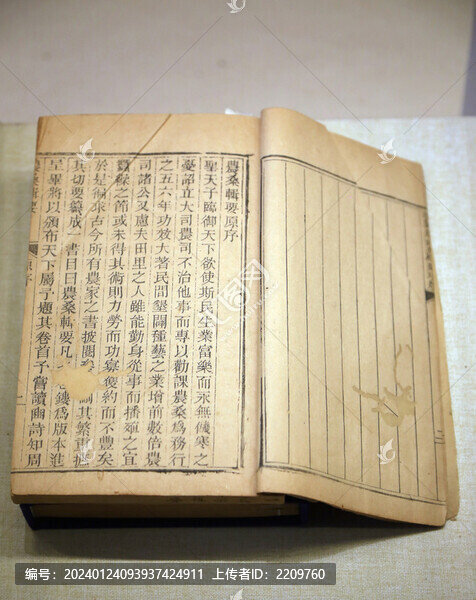 農桑輯要原序
聖天子臨御天下欲使斯民生業富樂而永無饑寒之
憂詔立大司農司不治他事而專以勸課農桑為務行
之五六年功效大著民間墾闢種藝之業增前數倍農
司諸公又慮夫田里之人雖能勤身從事而播殖之宜
蠶繰之節或未得其術則力勞而功寡獲約而不豐矣
於是徧求古今所有農家之書披閱 其繁重摭
其切要纂成一書目曰農桑輯要凡 鏤為版本進
呈畢將以頒布天下屬予題其卷首予嘗讀豳詩知周
農桑輯要
原序
二
编号：20240124093937424911 上传者ID：2209760